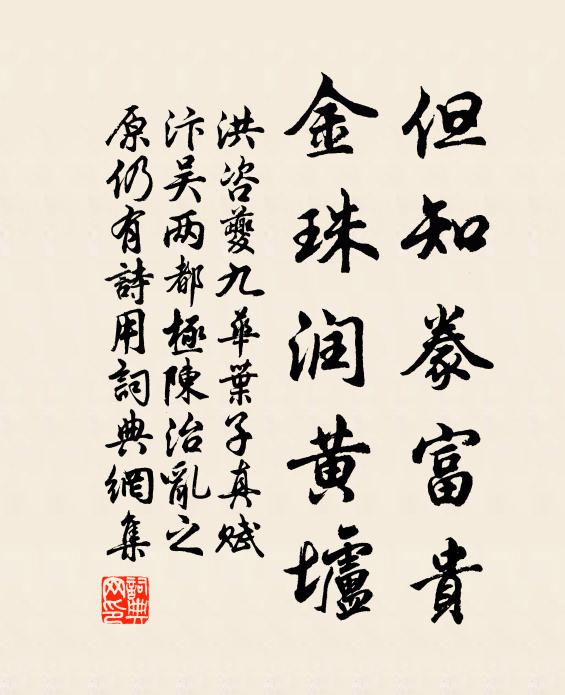 但知豢富貴
金珠润黄壚
洪咨夔九華葉子真賦
汴吴两都極陳治亂之
原仍有詩用詞典網集
詞典網印